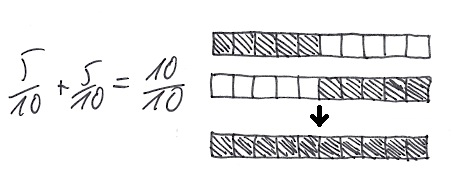 5/10 + 5/10 = 10/10